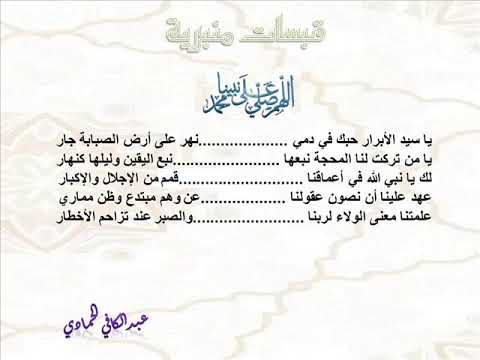 قبسات منبرية
اللهم صلي على نبينا محمد
يا سيد الأبرار حبك في دمي ....................نهر على أرض الصبابة جار
يا من تركت لنا المحجة نبعها ........................نبع اليقين وليلها كنهار
لك يا نبي الله في أعماقنا ............................قمم من الإجلال والإكبار
عهد علينا أن نصون عقولنا ...................عن وهم مبتدع وظن مماري
علمتنا معنى الولاء لربنا .........................والصبر عند تزاحم الأخطار
عبدالكافي الحمادي